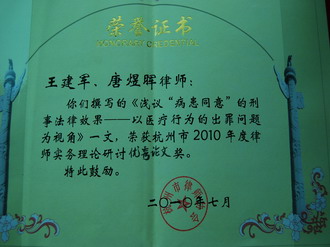 荣誉证书
HONORARY CREDENTIAL
王建军、唐煜晖律师：
你们撰写的《浅议“病患同意”的刑
事法律效果——以医疗行为的出罪问题
为视角》一文，荣获杭州市2010年度律
师实务理论研讨优秀论文奖。
特此鼓励。
杭州市律师协会
二〇一〇年七月